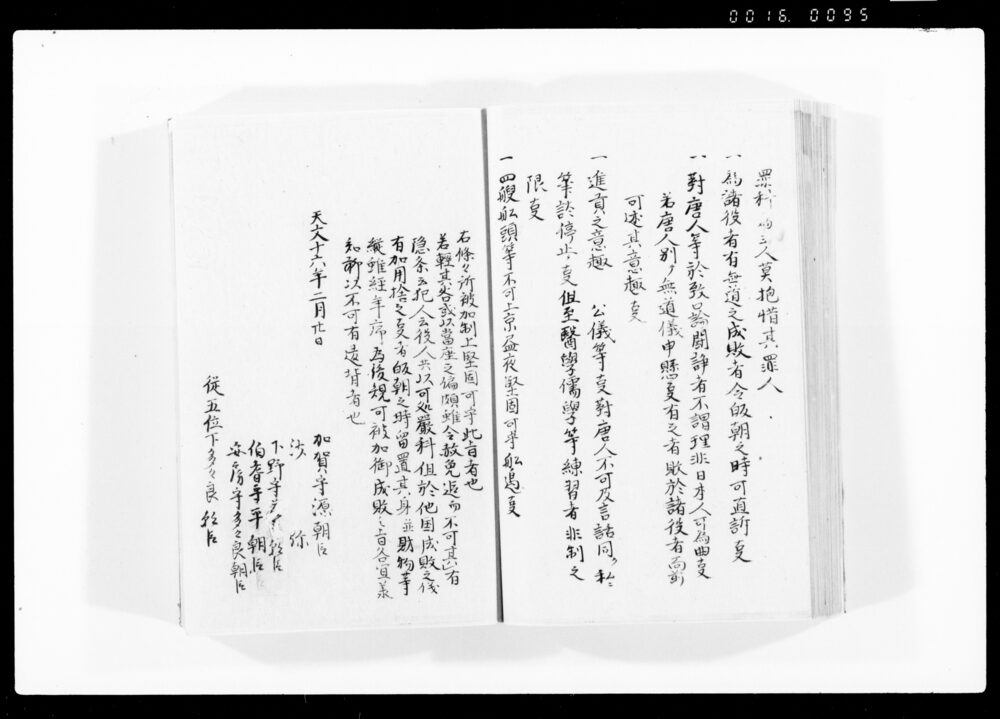 0016. 0095
罪科為三人莫抱惜其罪人
一為諸役者有無道之成敗者令皈朝之時可直訴叓
一對唐人等於致口論鬪諍者不謂理非日本人可為曲叓
若唐人別而無道儀申懸叓有之者致於諸役者
可述其意趣叓
一進貢之意趣 公儀等叓對唐人不可及言詰同々私
筆談停止叓但至醫學儒學等練習者非制之
限叓
一四艘舩頭等不可上京昼夜堅固可守舩邊叓
右條々所被加制止堅固可守此旨者也
若輕其咎或以當座之偏頗雖令赦免追而不可其有
隠条云犯人云役人共以可処嚴科但於他国成敗之儀
有加用捨之叓者皈朝之時留置其身並財物等
縦雖經年序為後規可被加御成敗之旨各宜義
知聊以不可有違背者也
天文十六年二月廿日
加賀守源朝臣
沙 弥
下野守 朝臣
伯耆守平朝臣
安房守多々良朝臣
従五位下多々良朝臣